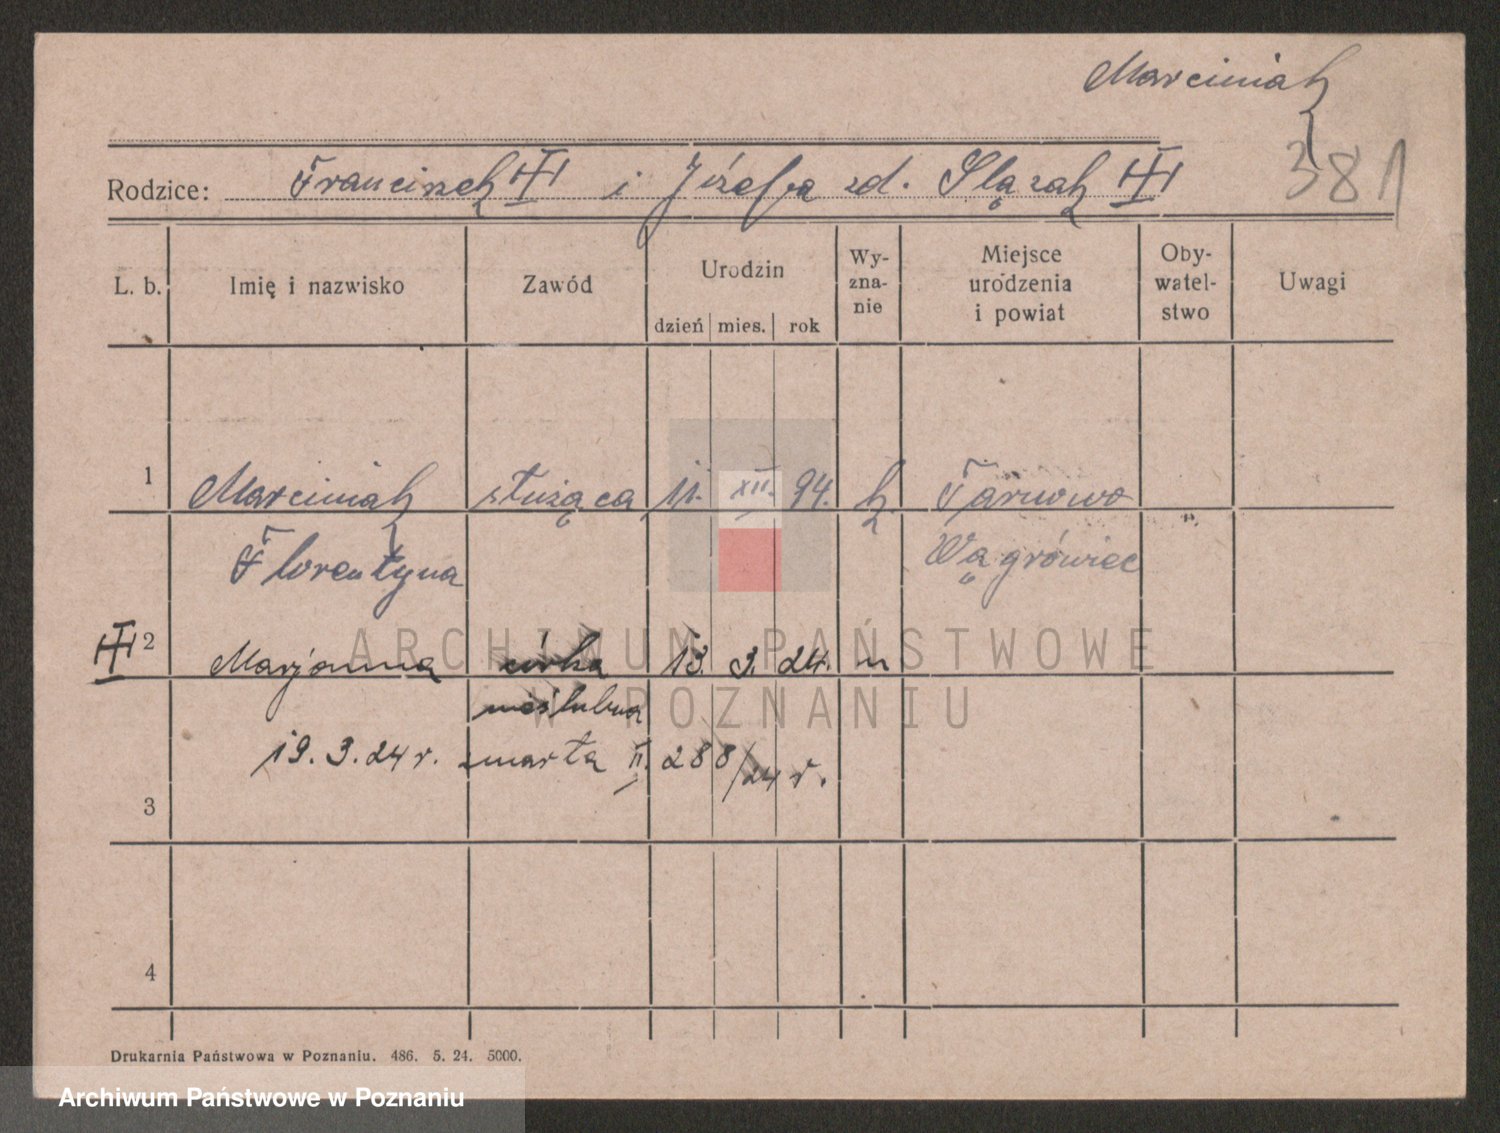 Marciniak
381
Rodzice: Franciszek i Józefa zd. Ślązak
L. b. Imię i nazwisko Zawód Urodzin dzień mies. rok Wy-zna-nie Miejsce urodzenia i powiat Oby-watel-stwo Uwagi
1 Marciniak służąca 11. XII. 94. k Tarnowo
Florentyna Wągrówiec
2 Marjanna córka 13. 3. 24. "
nieślubna
19. 3. 24 r. zmarła II. 288/24 r.
3
4
Drukarnia Państwowa w Poznaniu. 486. 5. 24. 5000.
ARCHIWUM PAŃSTWOWE
W POZNANIU
Archiwum Państwowe w Poznaniu